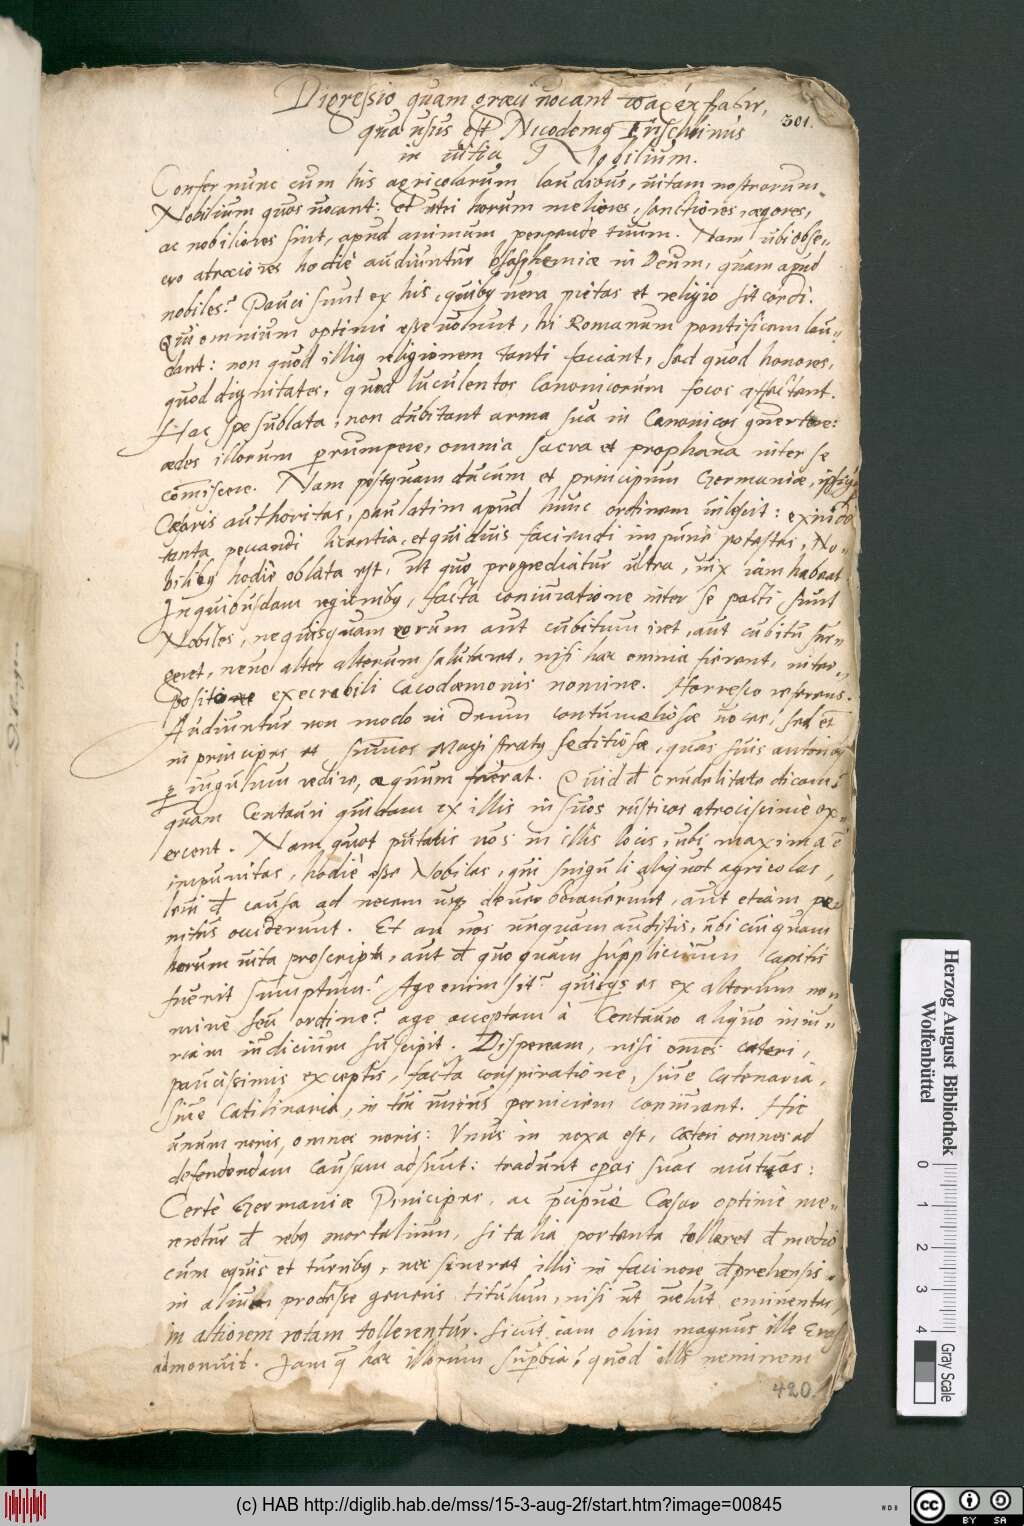 Digressio quam graeci uocant παρέκβασιν,
301.
qua usus est Nicodemus Frischlinus
in uitia Nobilium.
Confer nunc cum his agricolarum laudibus, uitam nostrorum
Nobilium quos uocant: et utri horum meliores, sanctiores, aeqores,
ac nobiliores sint, apud animum perpende tuum. Nam ubi obse-
cro atrociores hodiè audiuntur blasphemiae in Deum, quam apud
nobiles? Pauci sunt ex his, quibus uera pietas et religio sit cordi.
Qui omnium optimi esse uolunt, hi Romanum pontificem lau-
dant: non quod illius religionem tanti faciant, sed quod honores,
quod dignitates, quod luculentos Canonicorum focos affectant.
Hac spe sublata, non dubitant arma sua in Canonicos
aedes illorum perrumpere, omnia sacra et prophana inter se
comiscere. Nam postquam ducum et principum Germaniae, ipsius
Caesaris authoritas, paulatim apud hunc ordinem uilescit: exinde
tanta peccandi licentia, et quiduis faciundi impunè potestas, No-
bilibus hodiè oblata est, ut quo progrediatur ultra, uix iam habeat
In quibusdam regionibus, facta coniuratione inter se pacti sunt
Nobiles, ne quisquam eorum aut cubitum iret, aut cubitu sur-
geret, neue alter alterum salutaret, nisi haec omnia fierent, inter-
posito execrabili Cacodaemonis nomine. Horresco referens.
Audiuntur non modo in Deum contumeliosae uoces, sed et
in principes et summos Magistratus seditiosae, quas suis
iugulum redire, aequum fuerat. Quid de crudelitate dicam?
quam Centauri quidam ex illis in suos rusticos atrocissimè ex-
ercent. Nam quot putatis uos in illis locis, ubi maxima e
impunitas, hodiè esse Nobiles, qui singuli aliquot agricolas,
leui de causa ad necem usque uerunt, aut etiam pe-
nitus occiderunt. Et an uos unquam audistis, ubi cuiquam
horum uita proscripta, aut de quoquam supplicium capitis
fuerit sumptum? Age enim sit? quisquis es ex altorum no-
mine seu ordine? age acceptam à Centauro aliquo iniu-
riam iudicium suscipit. Dispeream, nisi omnes caeteri,
paucissimis exceptis, facta conspiratione, siue Catenaria,
siue Catilinaria, in tui unius perniciem coniurant. Hic
unum noris, omnes noris: Vnus in noxa est, caeteri omnes ad
defendendam causam adsunt: tradunt operas suas mutuas:
Certè Germaniae Principes, ac praecipuè Caesar optimè me-
reretur de rebus mortalium, si talia portenta tolleret de medio
cum equis et turribus, nec sineret illis in facinore deprehensis
in alium prodesse generis titulum, nisi ut uelut eminentius
in altiorem rotam tollerentur. sicut iam olim magnus ille Eras
admonuit. Iam quae haec illorum superbia? quod illi neminem
420.
Herzog August Bibliothek
Wolfenbüttel
0 1 2 3 4
Gray Scale
(c) HAB http://diglib.hab.de/mss/15-3-aug-2f/start.htm?image=00845
WDB
cc BY SA